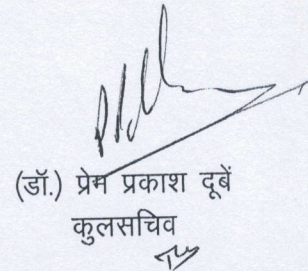 (डॉ.) प्रेम प्रकाश दूबें
कुलसचिव